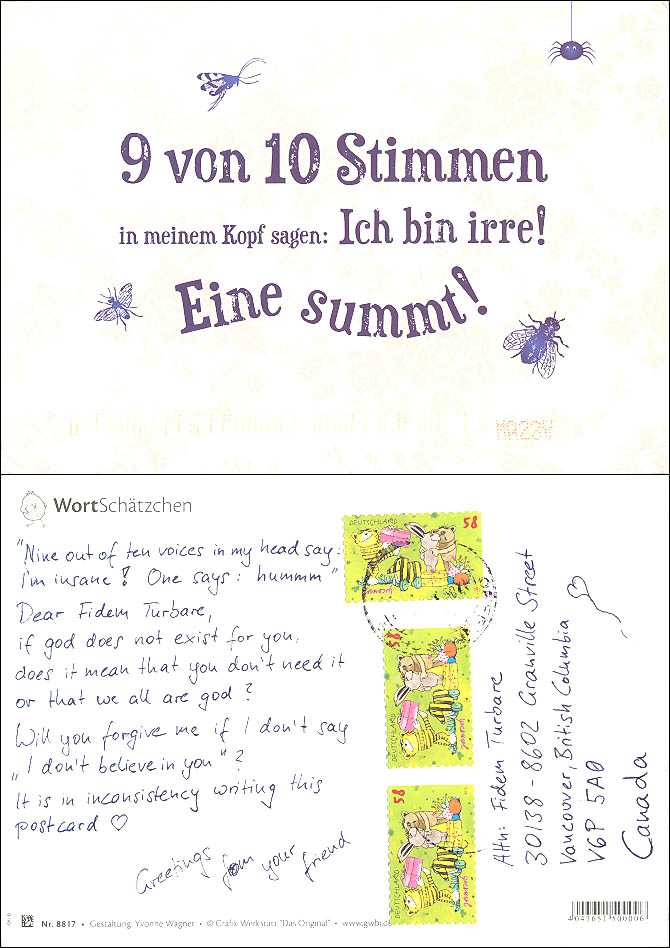 9 von 10 Stimmen
in meinem Kopf sagen: Ich bin irre!
Eine summt!
MA22V
WortSchätzchen
"Nine out of ten voices in my head say:
I'm insane! One says: hummm"
Dear Fidem Turbare,
if god does not exist for you,
does it mean that you don't need it
or that we all are god?
Will you forgive me if I don't say
„I don't believe in you"?
It is in inconsistency writing this
postcard ♡
Greetings from your friend
DEUTSCHLAND 58
janosch
DEUTSCHLAND 58
janosch
DEUTSCHLAND 58
janosch
Attn: Fidem Turbare
30138-8602 Granville Street
Vancouver, British Columbia
V6P 5A0
Canada
Nr. 8817 • Gestaltung: Yvonne Wagner • © Grafik Werkstatt "Das Original" • www.gwbi.de
4043651500006